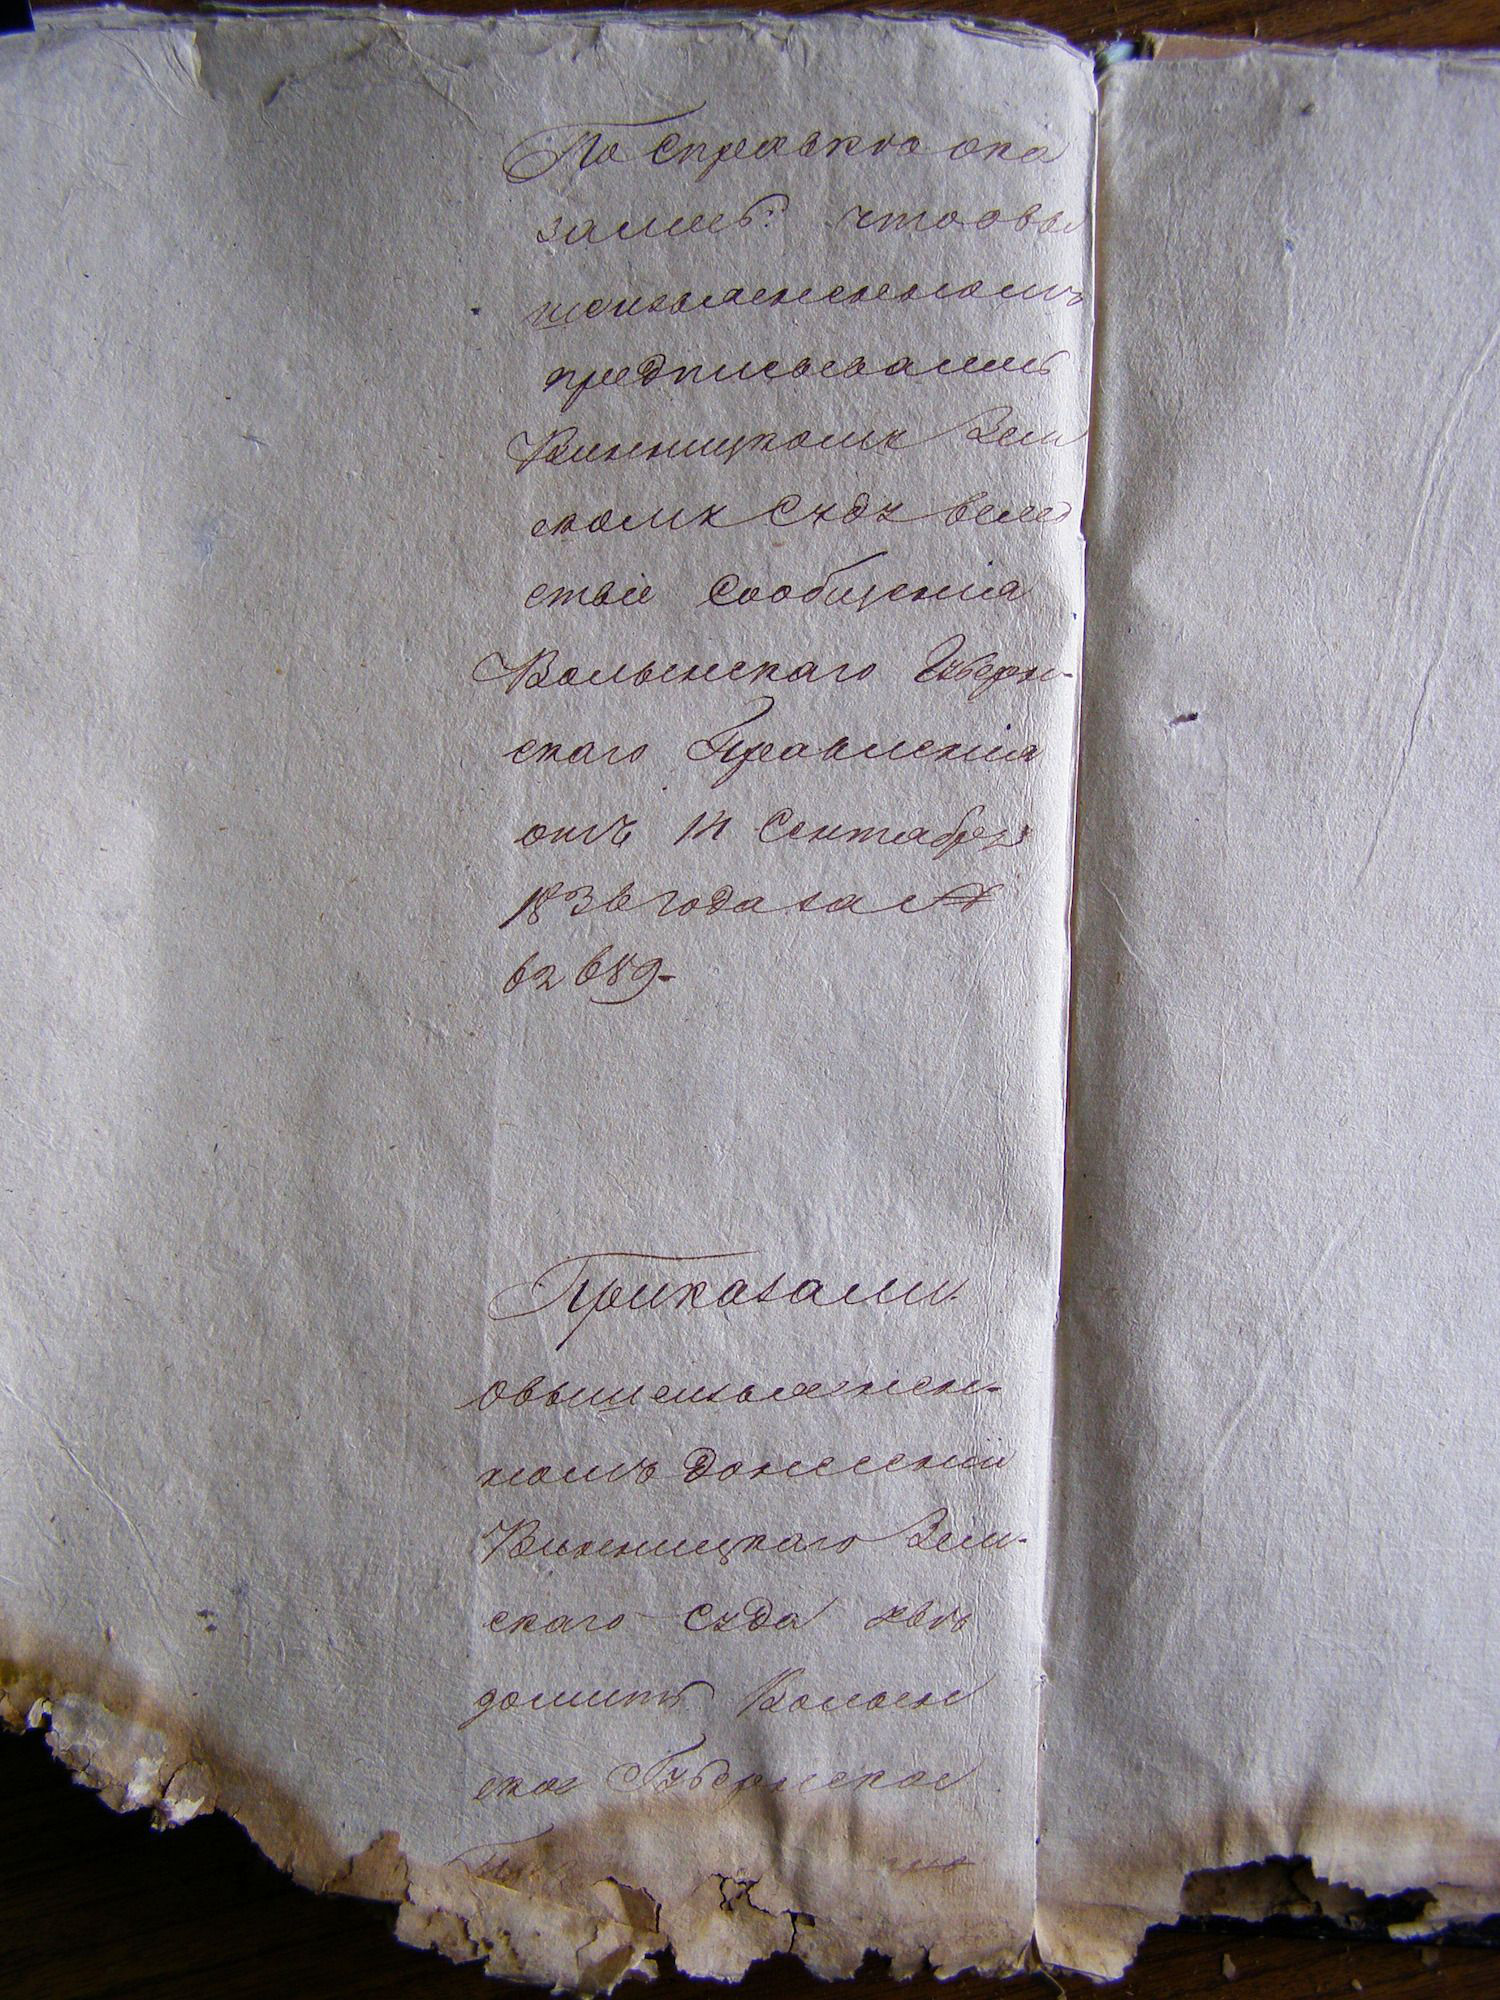 По Справкѣ ока
залось: что овы
шеизъясненномъ
предписывалось
Винницкому Зем
скому Суду вслед
ствіе Сообщенія
Волынскаго Губерн-
скаго Правленія
отъ 14 Сентября
1836 года за №
62689-
Приказали
овышеизъяснен-
номъ донесеніи
Винницкаго Зем-
скаго Суда увѣ
домить Волын
ское Губернское